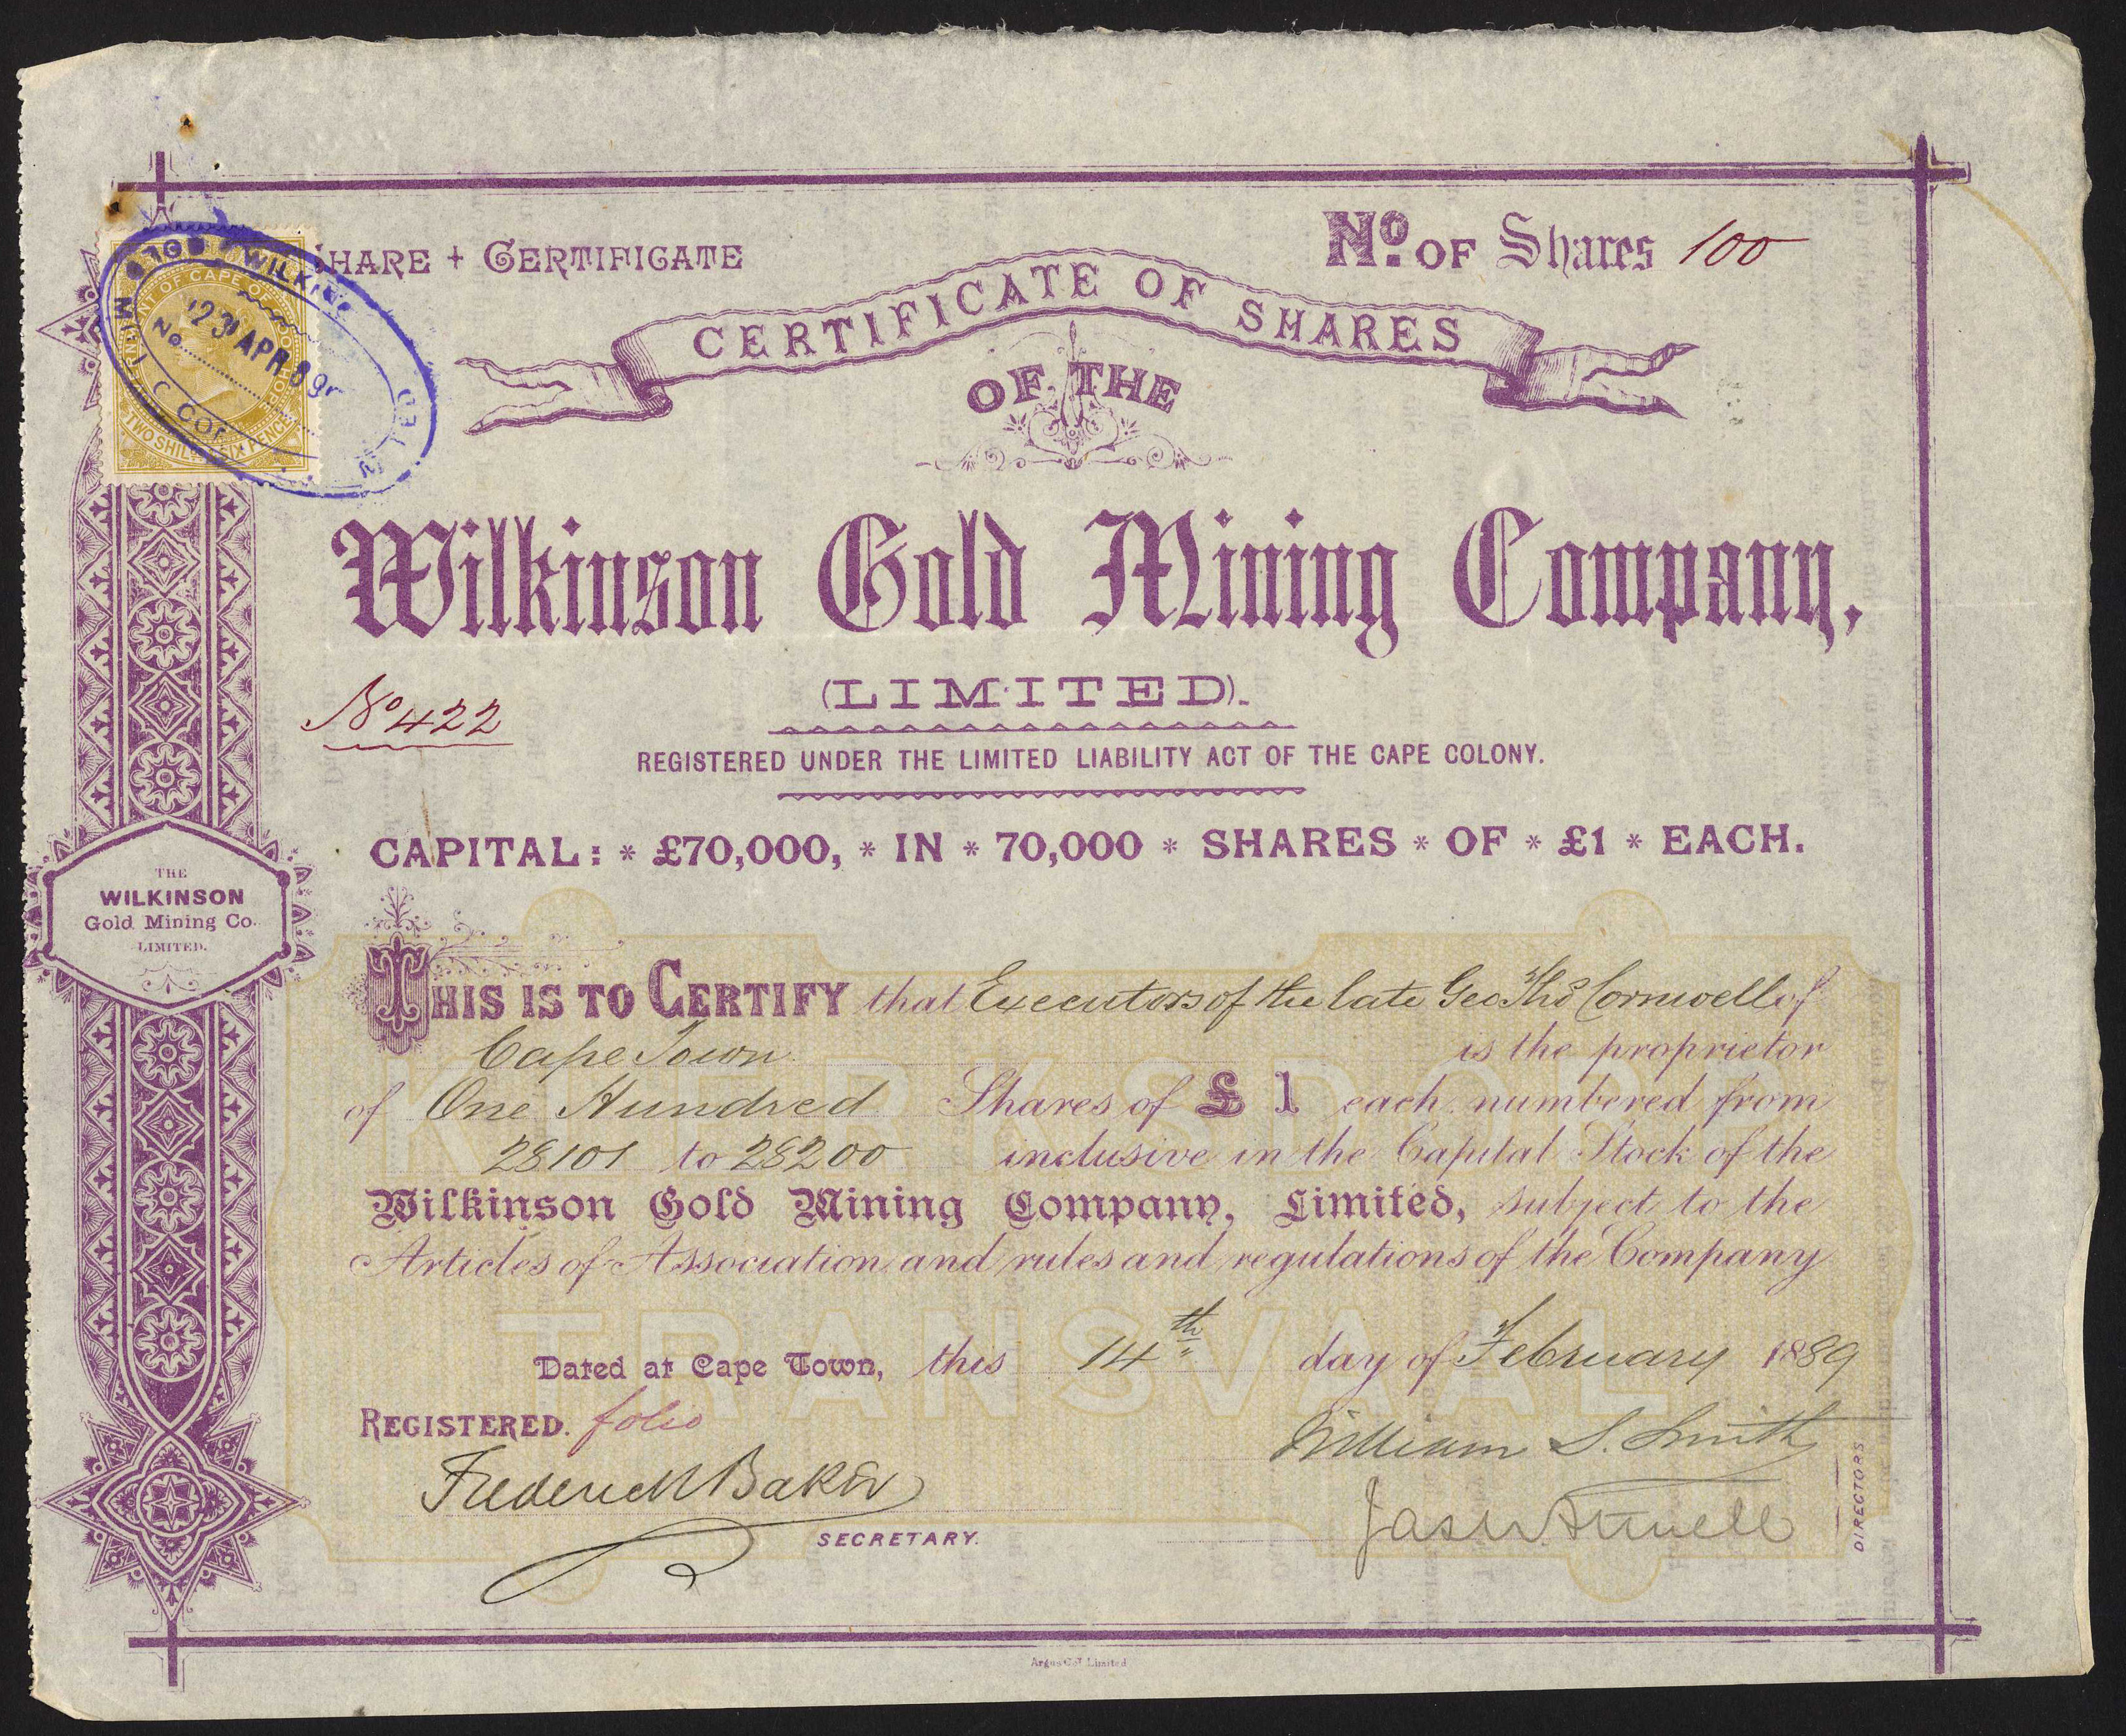 SHARE + CERTIFICATE
No. OF Shares 100
CERTIFICATE OF SHARES
OF THE
Wilkinson Gold Mining Company,
(LIMITED).
No 422
REGISTERED UNDER THE LIMITED LIABILITY ACT OF THE CAPE COLONY.
CAPITAL: * £70,000, * IN * 70,000 * SHARES * OF * £1 * EACH.
THE
WILKINSON
Gold Mining Co.
LIMITED.
THIS IS TO CERTIFY that Executors of the late Geo Thos Cornwell of
Cape Town is the proprietor
of One Hundred Shares of £ 1 each numbered from
28101 to 28200 inclusive in the Capital Stock of the
Wilkinson Gold Mining Company, Limited, subject to the
Articles of Association and rules and regulations of the Company
Dated at Cape Town, this 14th day of February 1889
REGISTERED. folio
William S. Smith
Frederick Baker
SECRETARY.
DIRECTORS
KLERKSDORP
TRANSVAAL
Argus Co. Limited
23 APR 89
No
TWO SHIL SIX PENCE